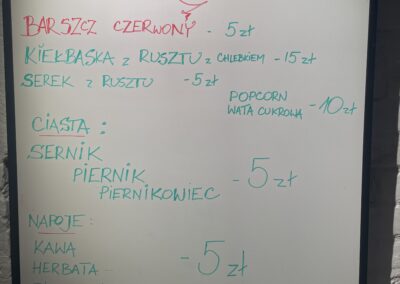 BARSZCZ CZERWONY - 5 zł
KIEŁBASKA z RUSZTU z CHLEBKIEM - 15 zł
SEREK z RUSZTU - 5 zł
POPCORN
WATA CUKROWA - 10 zł
CIASTA :
SERNIK
PIERNIK
PIERNIKOWIEC - 5 zł
NAPOJE :
KAWA
HERBATA - 5 zł